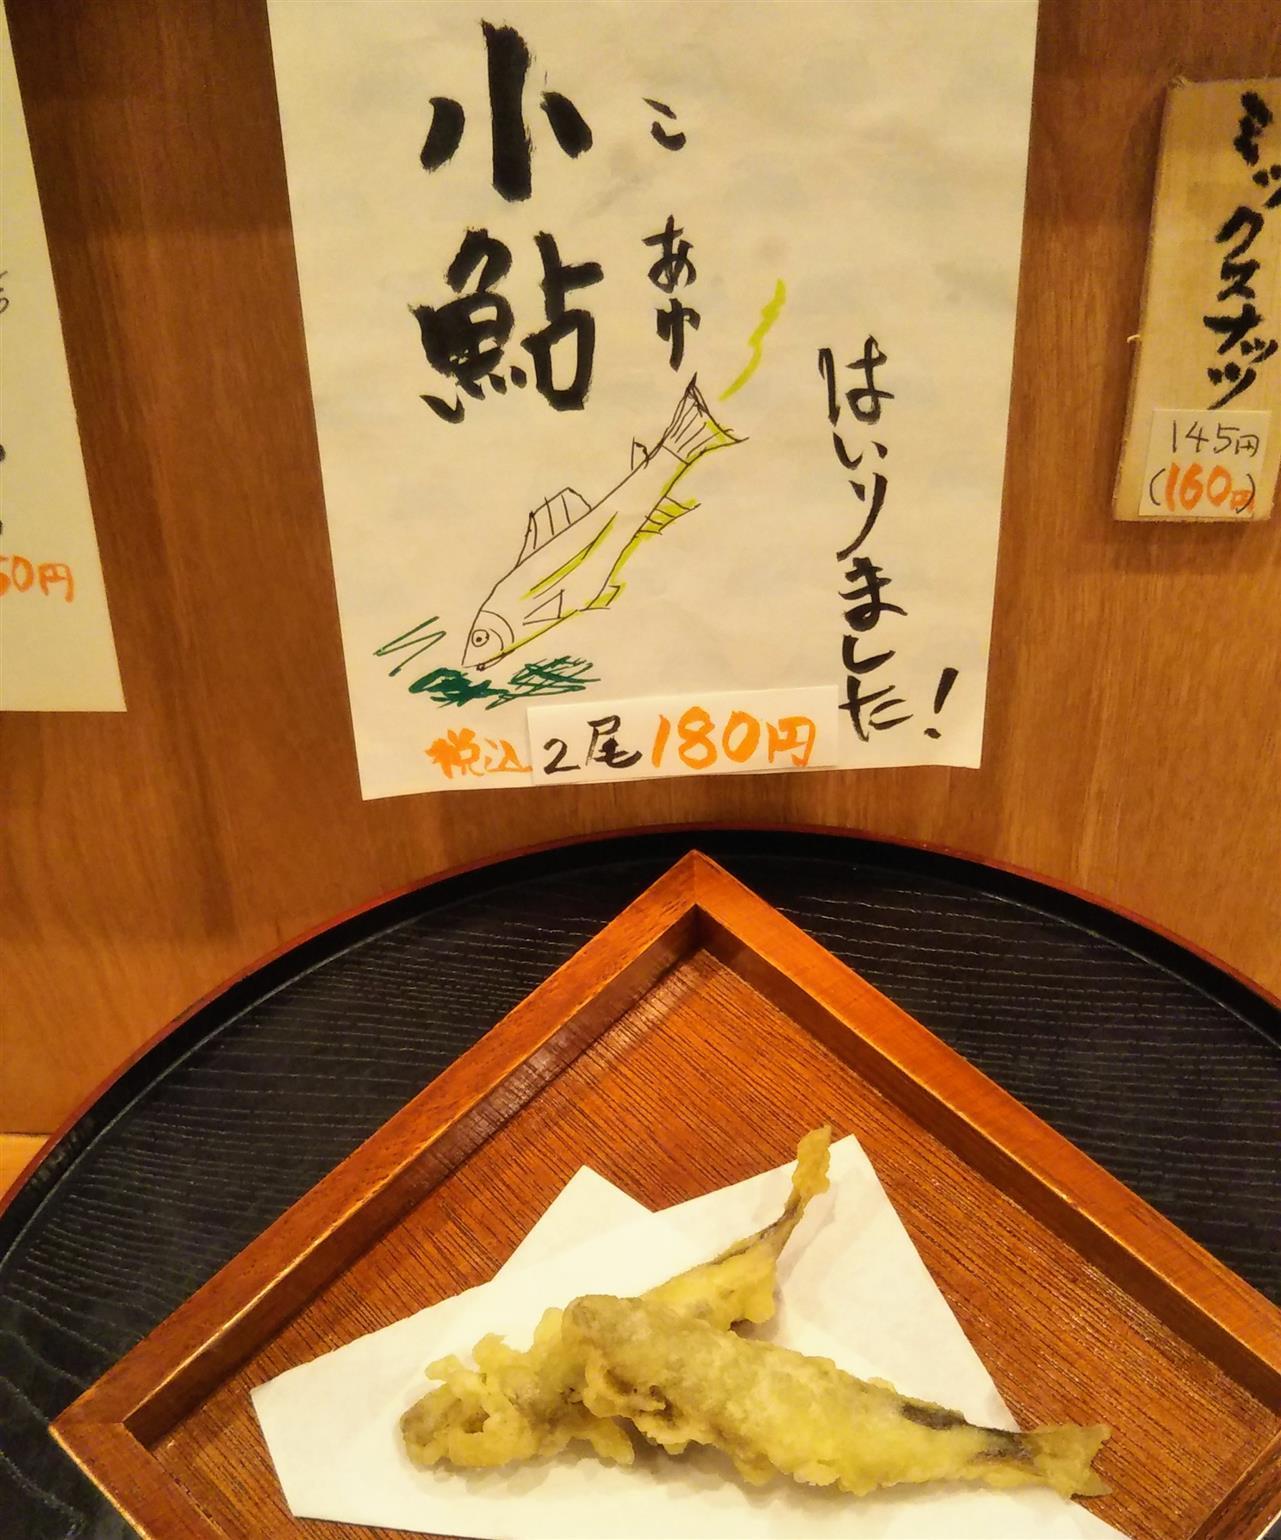 小鮎
こあゆ
はいりました!
税込 2尾 180円
ミックスナッツ
145円
(160円)
50円